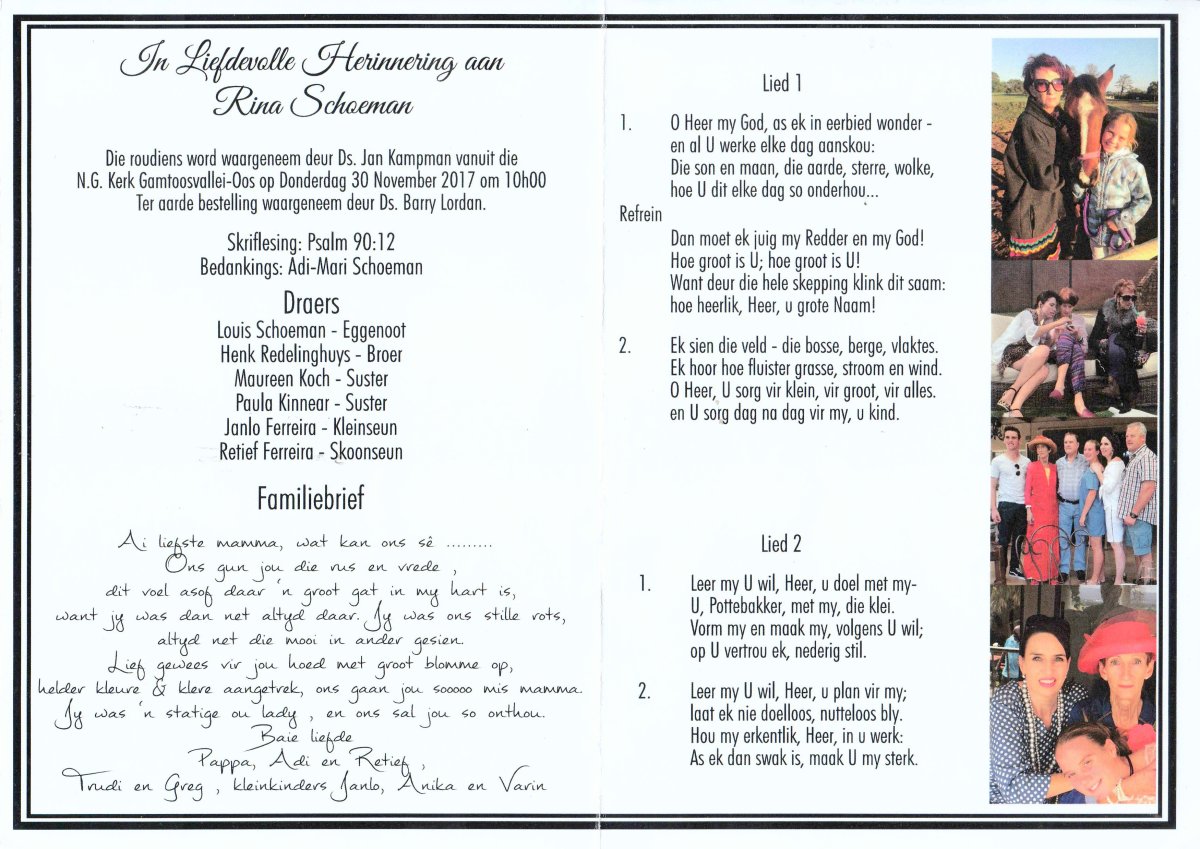 In Liefdevolle Herinnering aan
Rina Schoeman
Die roudiens word waargeneem deur Ds. Jan Kampman vanuit die
N.G. Kerk Gamtoosvallei-Oos op Donderdag 30 November 2017 om 10h00
Ter aarde bestelling waargeneem deur Ds. Barry Lordan.
Skriflesing: Psalm 90:12
Bedankings: Adi-Mari Schoeman
Draers
Louis Schoeman - Eggenoot
Henk Redelinghuys - Broer
Maureen Koch - Suster
Paula Kinnear - Suster
Janlo Ferreira - Kleinseun
Retief Ferreira - Skoonseun
Familiebrief
Ai liefste mamma, wat kan ons sê .........
Ons gun jou die rus en vrede ,
dit voel asof daar 'n groot gat in my hart is,
want jy was dan net altyd daar. Jy was ons stille rots,
altyd net die mooi in ander gesien.
Lief gewees vir jou hoed met groot blomme op,
helder kleure & klere aangetrek, ons gaan jou sooooo mis mamma.
Jy was 'n statige ou lady , en ons sal jou so onthou.
Baie liefde
Pappa, Adi en Retief ,
Trudi en Greg , kleinkinders Janlo, Anika en Varin
Lied 1
1. O Heer my God, as ek in eerbied wonder -
en al U werke elke dag aanskou:
Die son en maan, die aarde, sterre, wolke,
hoe U dit elke dag so onderhou...
Refrein
Dan moet ek juig my Redder en my God!
Hoe groot is U; hoe groot is U!
Want deur die hele skepping klink dit saam:
hoe heerlik, Heer, u grote Naam!
2. Ek sien die veld - die bosse, berge, vlaktes.
Ek hoor hoe fluister grasse, stroom en wind.
O Heer, U sorg vir klein, vir groot, vir alles.
en U sorg dag na dag vir my, u kind.
Lied 2
1. Leer my U wil, Heer, u doel met my-
U, Pottebakker, met my, die klei.
Vorm my en maak my, volgens U wil;
op U vertrou ek, nederig stil.
2. Leer my U wil, Heer, u plan vir my;
laat ek nie doelloos, nutteloos bly.
Hou my erkentlik, Heer, in u werk:
As ek dan swak is, maak U my sterk.